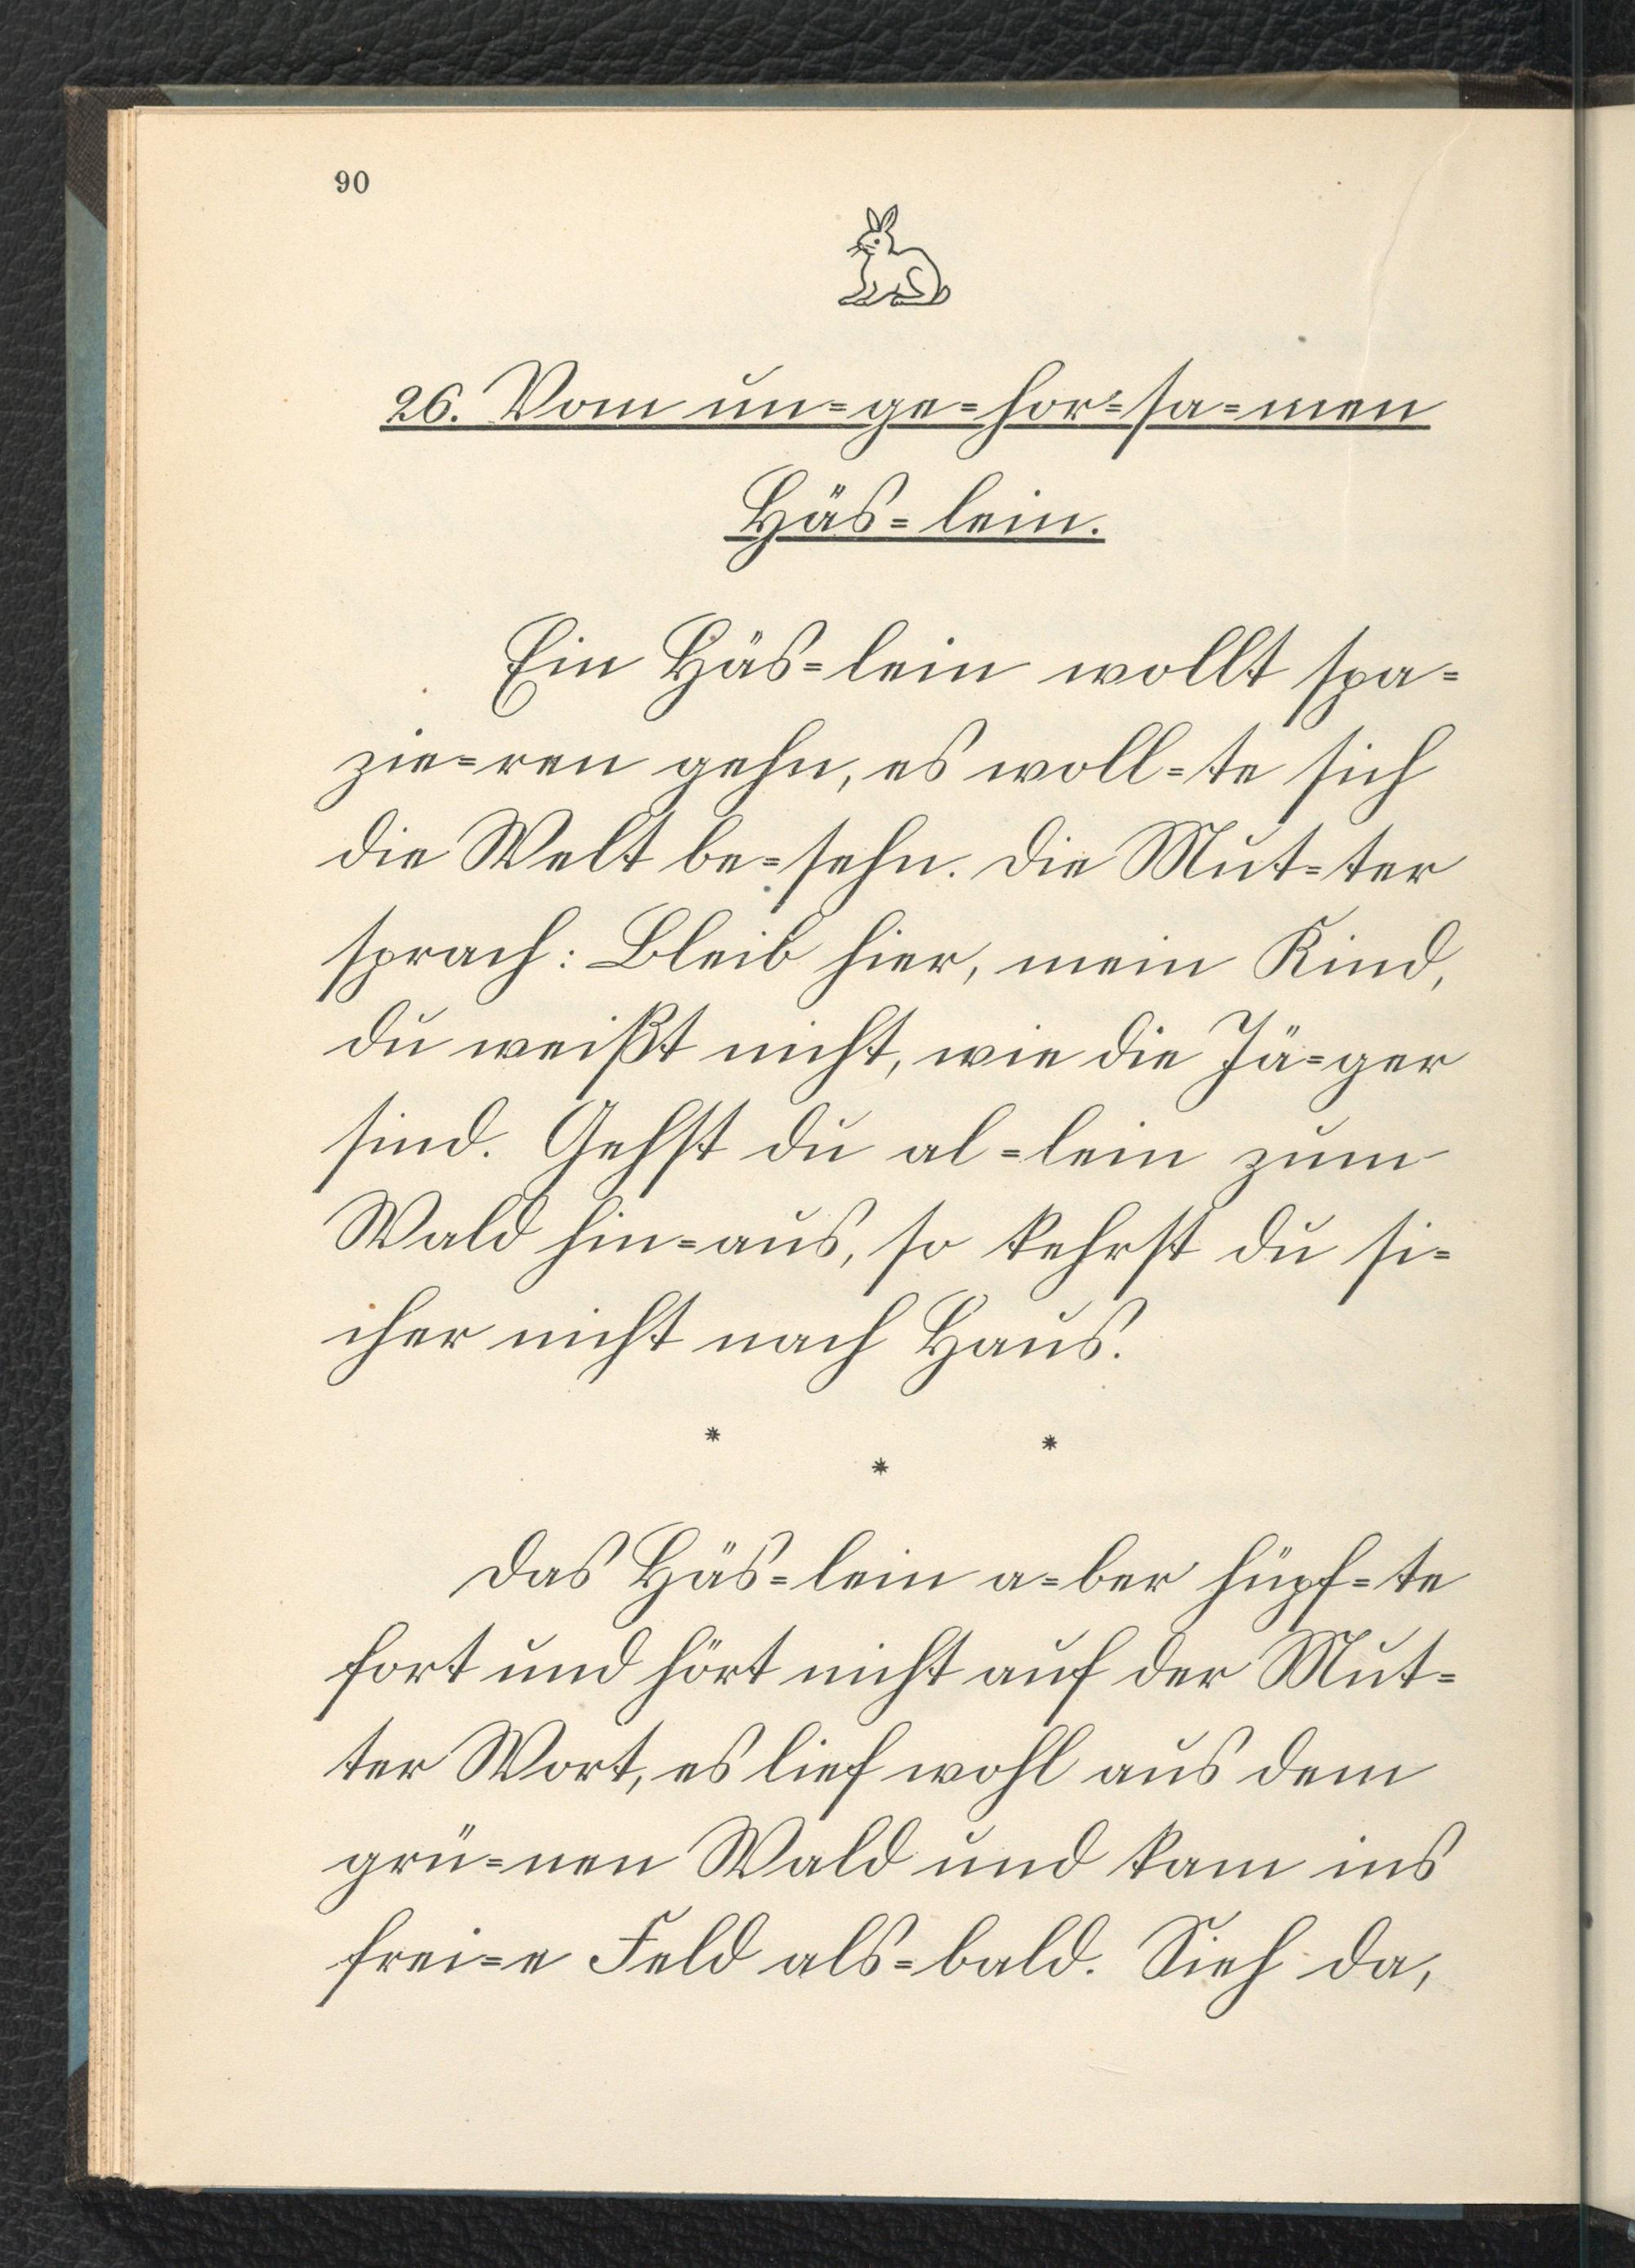 90
26. Vom un=ge=hor=sa=men
Häs=lein.
Ein Häs=lein wollt spa=
zie=ren gehn, es woll=te sich
die Welt be=sehn. Die Mut=ter
sprach: Bleib hier, mein Kind,
du weißt nicht, wie die Jä=ger
sind. Gehst du al=lein zum
Wald hin=aus, so kehrst du si=
cher nicht nach Haus.
* * *
Das Häs=lein a=ber hüpf=te
fort und hört nicht auf der Mut=
ter Wort, es lief wohl aus dem
grü=nen Wald und kam ins
frei=e Feld als=bald. Sieh da,